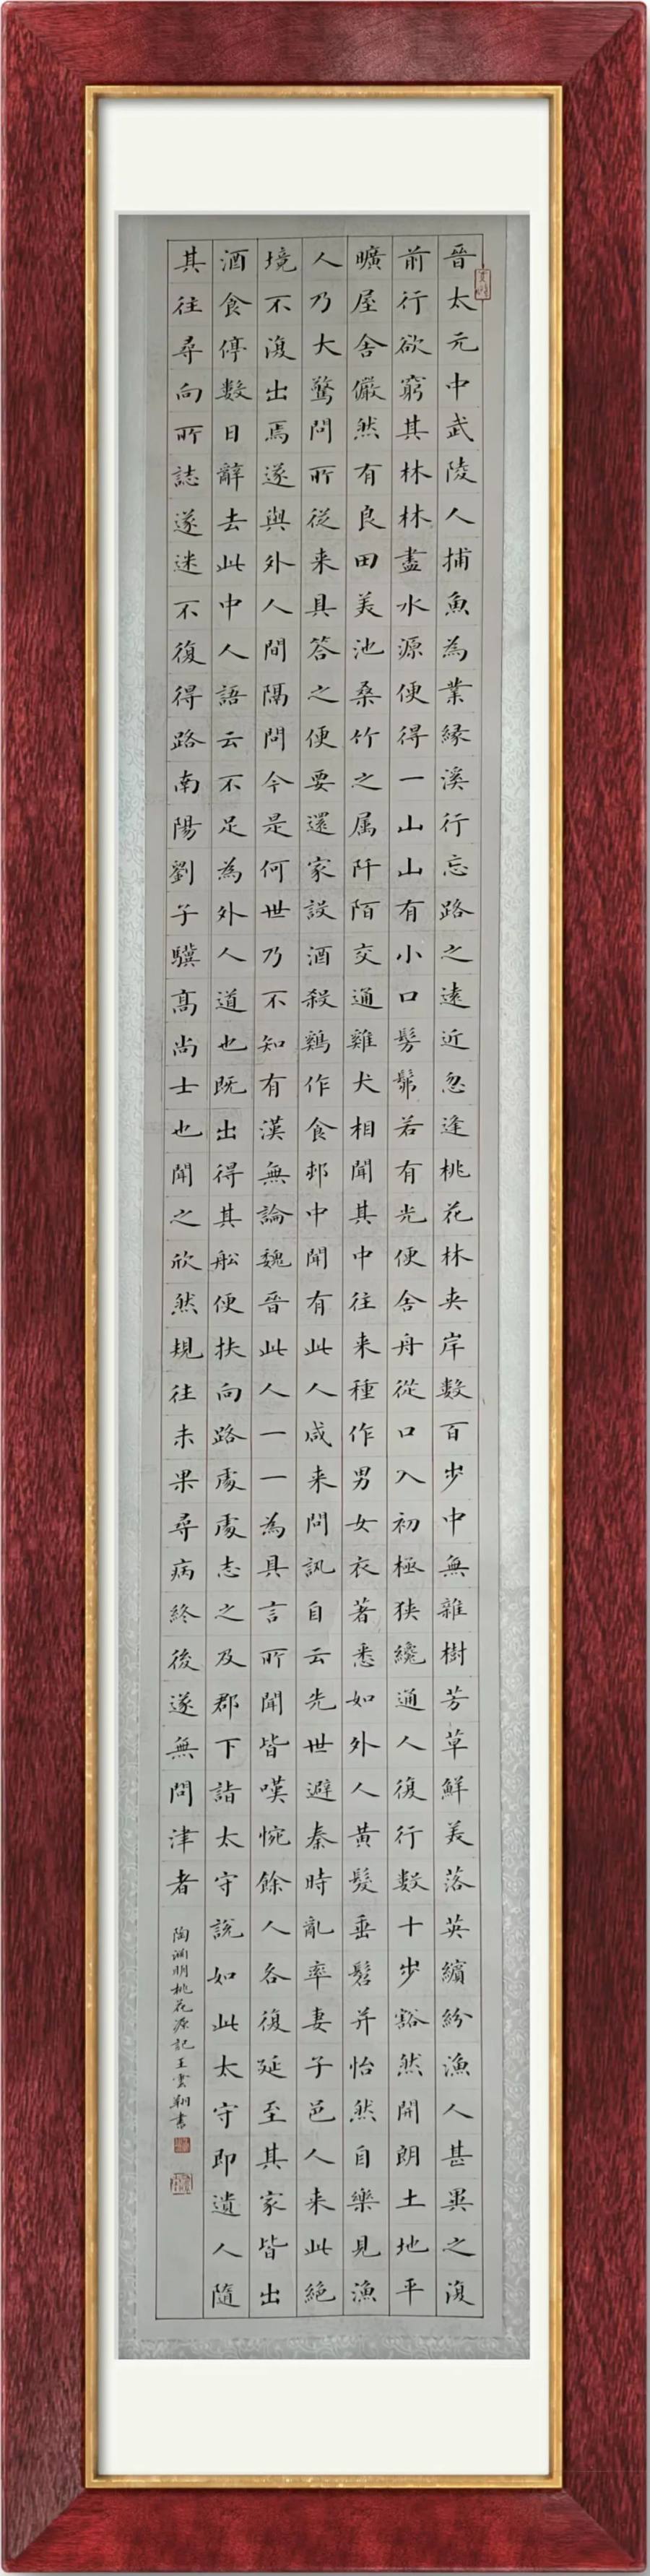 晉太元中武陵人捕魚為業緣溪行忘路之遠近忽逢桃花林夾岸數百步中無雜樹芳草鮮美落英繽紛漁人甚異之復
前行欲窮其林林盡水源便得一山山有小口髣髴若有光便舍舟從口入初極狹纔通人復行數十步豁然開朗土地平
曠屋舍儼然有良田美池桑竹之属阡陌交通雞犬相聞其中往来種作男女衣著悉如外人黃髮垂髫并怡然自樂見漁
人乃大驚問所從来具答之便要還家設酒殺鷄作食邨中聞有此人咸来問訊自云先世避秦時亂率妻子邑人来此絕
境不復出焉遂與外人間隔問今是何世乃不知有漢無論魏晉此人一一為具言所聞皆嘆惋餘人各復延至其家皆出
酒食停數日辭去此中人語云不足為外人道也既出得其船便扶向路處處志之及郡下詣太守說如此太守即遣人隨
其往尋向所誌遂迷不復得路南陽劉子驥高尚士也聞之欣然規往未果尋病終後遂無問津者
陶淵明桃花源記王雲翔書